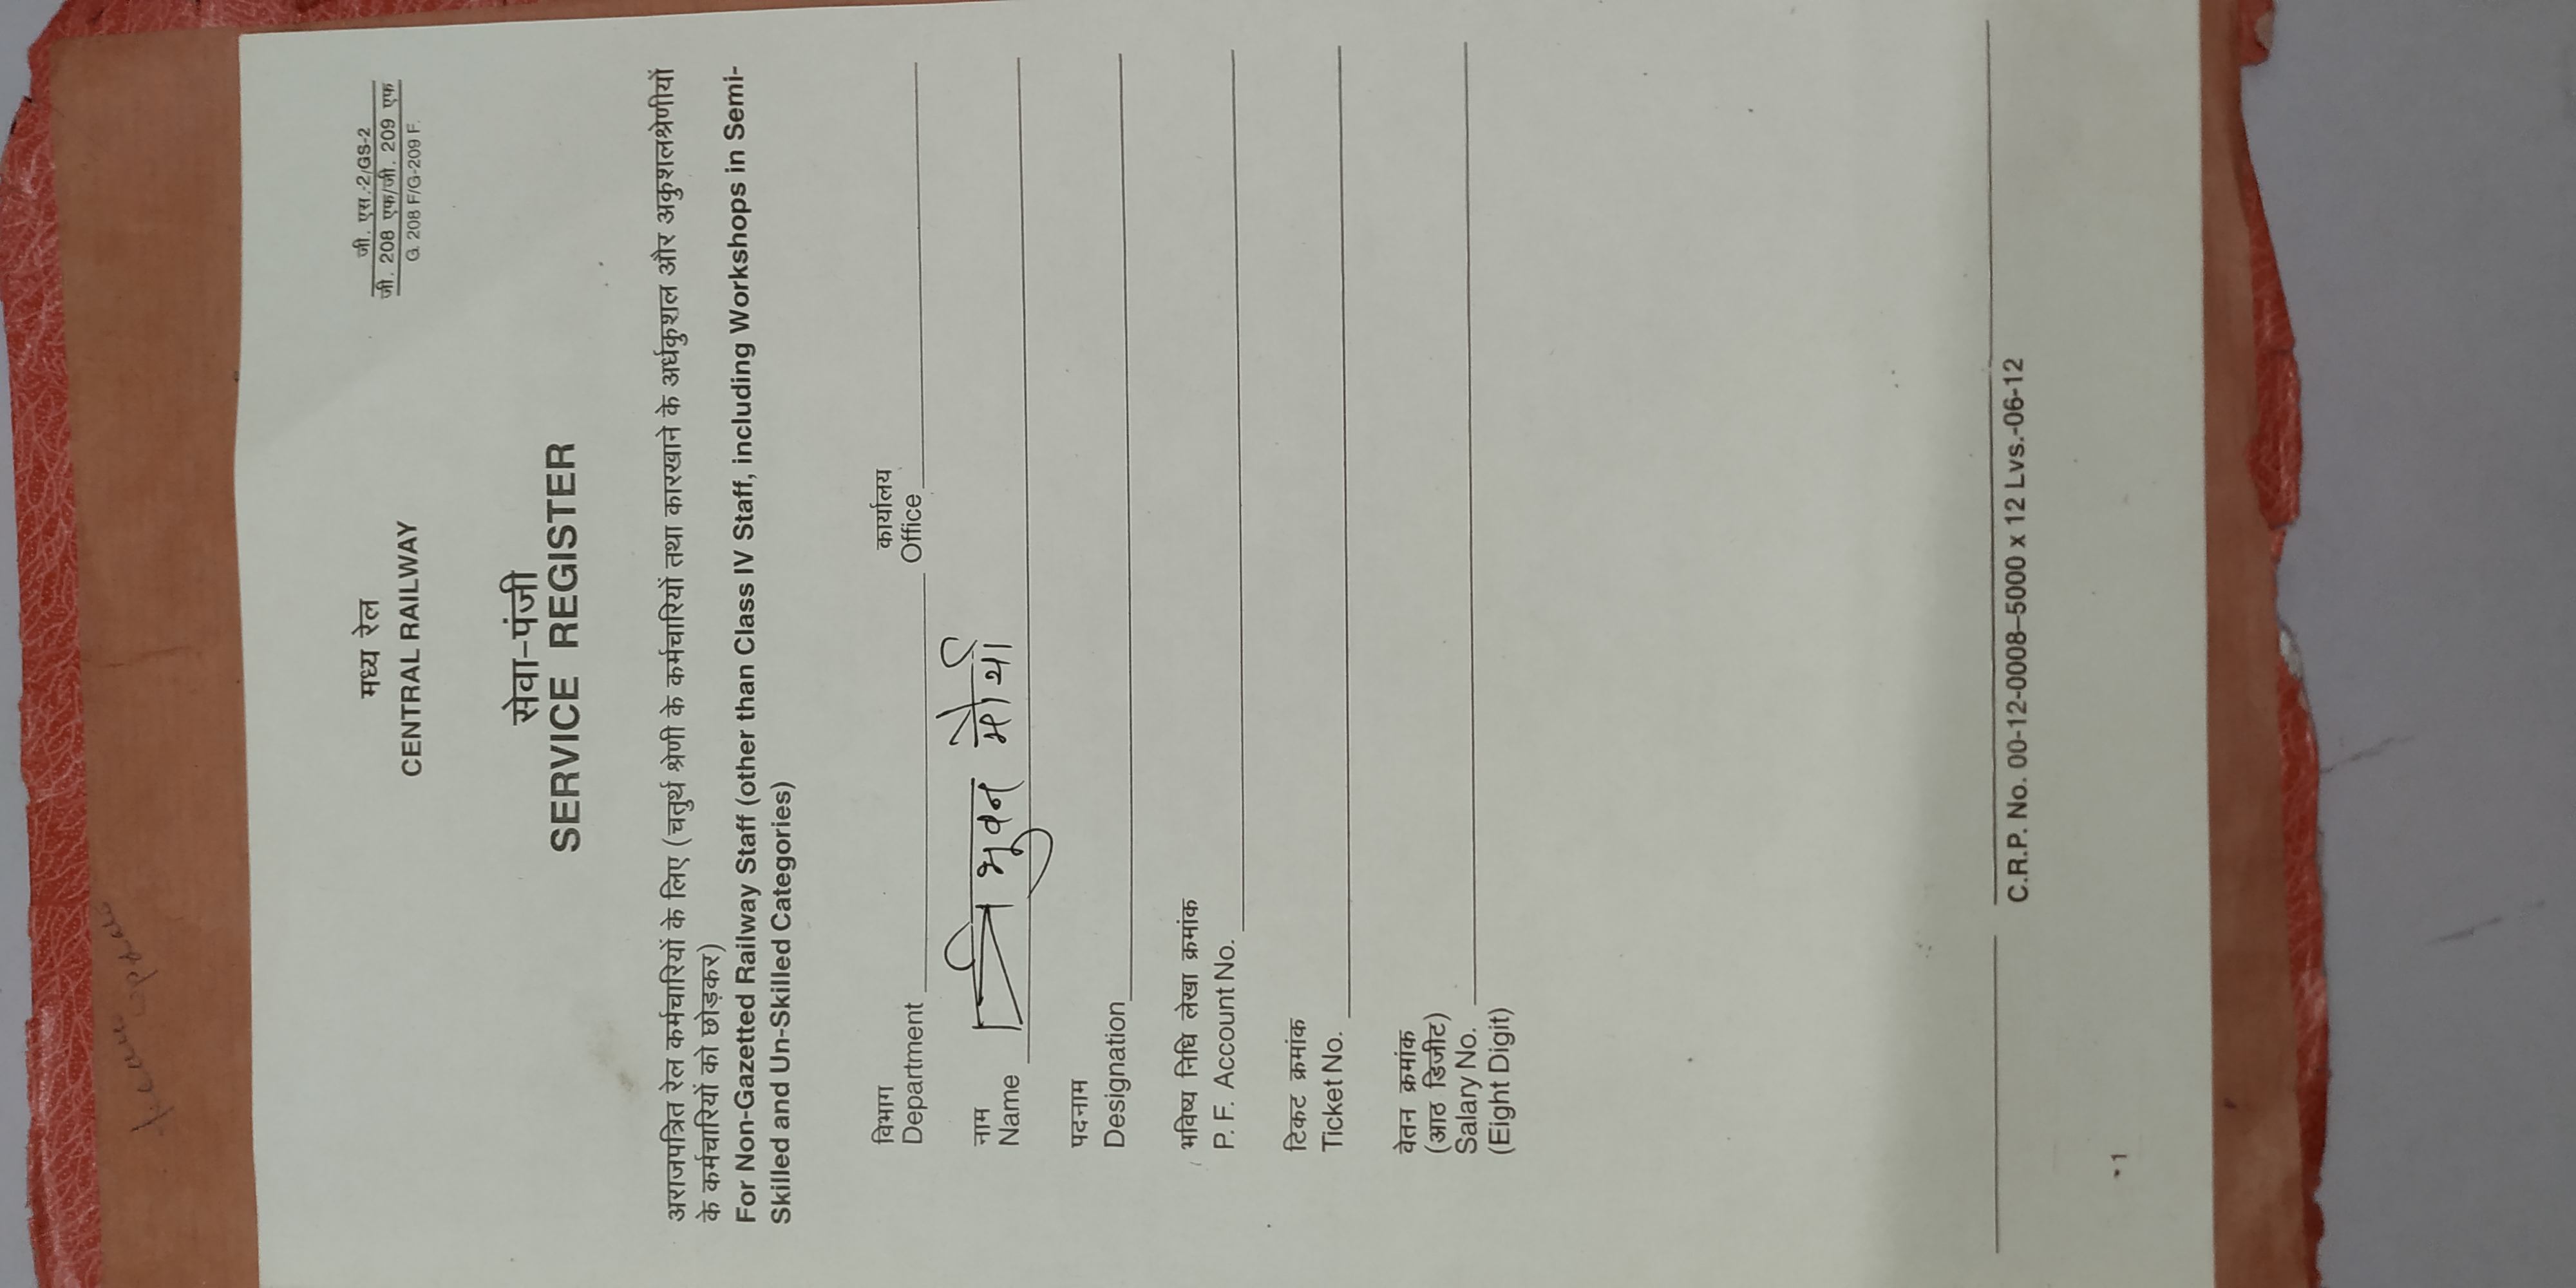 मध्य रेल
CENTRAL RAILWAY
जी. एस.-2/GS-2
जी. 208 एफ/जी. 209 एफ
G. 208 F/G-209 F.
सेवा-पंजी
SERVICE REGISTER
अराजपत्रित रेल कर्मचारियों के लिए (चतुर्थ श्रेणी के कर्मचारियों तथा कारखाने के अर्धकुशल और अकुशलश्रेणीयों
के कर्मचारियों को छोड़कर)
For Non-Gazetted Railway Staff (other than Class IV Staff, including Workshops in Semi-
Skilled and Un-Skilled Categories)
विभाग
Department
कार्यालय
Office
नाम
Name त्रिभुवन मौर्या
पदनाम
Designation
भविष्य निधि लेखा क्रमांक
P. F. Account No.
टिकट क्रमांक
Ticket No.
वेतन क्रमांक
(आठ डिजीट)
Salary No.
(Eight Digit)
C.R.P. No. 00-12-0008–5000 x 12 Lvs.-06-12
1